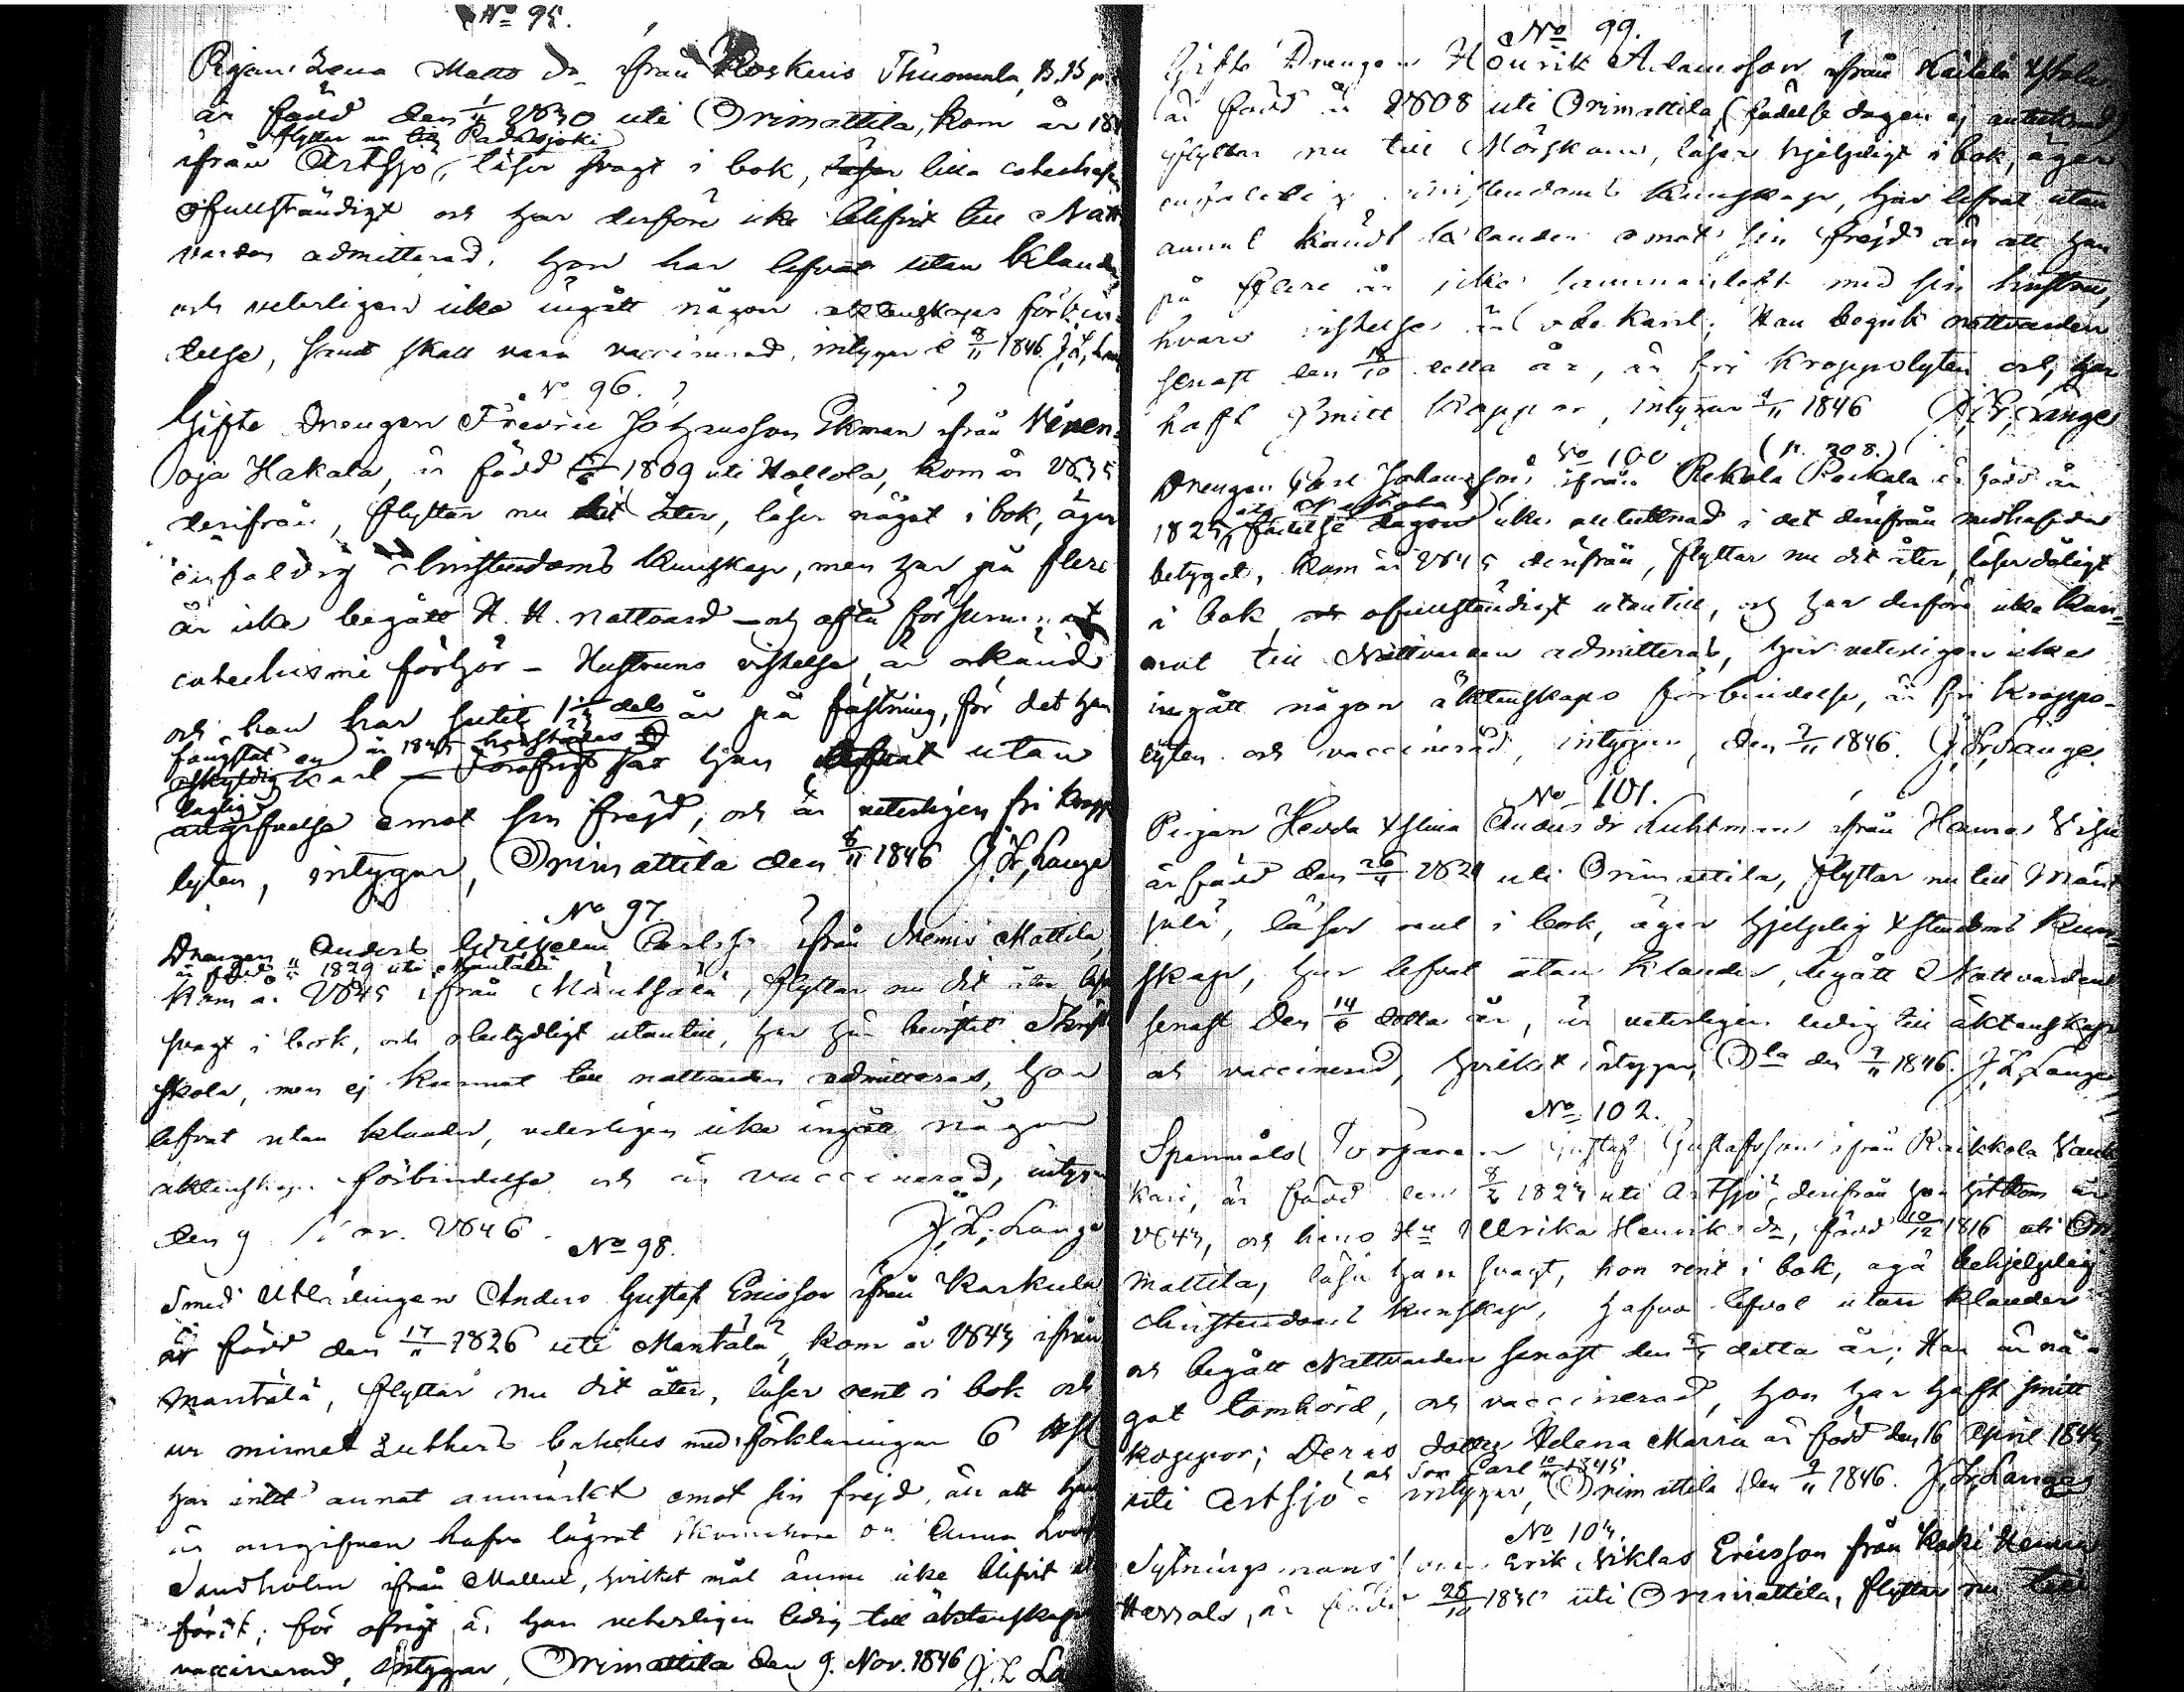 No 95.
Pigan Lena Matts dr ifrån Koskuis Thuomala, B.B.
är född den 1/11 1830 uti Orimattila, kom år
flyttar nu till Padasjoki
ifrån Artsjö, läser svagt i bok, lilla catechesen
ofullständigt och har derföre icke blifvit till Natt
varden admitterad. Hon har lefvat utan klander
och veterligen icke ingått någon ektenskaps förbin-
delse, samt skall vara vaccinerad, intygar d 8/11 1846.
No 96.
Gifte Drengen Fredric Johansson Ekman ifrån
oja Hakala, är född 1809 uti Hollola, kom år 1835
derifrån, flyttar nu dit åter, läser något i bok, äger
enfaldig Christendoms kunskap, men har på flere
år icke begått H. H. nattvard – och ofta försummat
catechismi förhör – Hustruns vistelse är okänd
och han har sutit års på fästning, för det han
fångslat en
oskyldig karl – har han lefvat utan
laglig
angifvelse emot sin frejd, och är veterligen fri kropps
lyten, intygar, Orimattila den 8/11 1846 J. Fr. Lange
No 97.
Drengen Anders Wilhelm Carlss. ifrån Niemis Mattila,
är född år 1829 uti Mäntsälä
kom år 1845 ifrån Mäntsälä, flyttar nu dit åter, läser
svagt i bok, och obetydligt utantill, har bevistat Skrift
skola, men ej kunnat till nattvarden admitteras, har
lefvat utan klander, veterligen icke ingått någon
äktenskaps förbindelse och är vaccinerad, intygar
den 9 Nov. 1846. J. L. Lange
No 98.
Smeds Utlärlingen Anders Gustaf Ericsson ifrån Karkula
är född den 17/11 1826 uti Mäntsälä, kom år 1843 ifrån
Mäntsälä, flyttar nu dit åter, läser rent i bok och
ur minnet Luthers Cateches med förklaringar 6
har intet annat anmärkt emot sin frejd, än att han
är angifven hafva lägrat Anna
Sandholm ifrån Mallus, hvilket mål ännu icke blifvit
fördt; för öfrigt är han veterligen ledig till äktenskap
vaccinerad, intygar, Orimattila den 9. Nov. 1846 J. L. La
No 99.
Gifte Drengen Henrik Adamsson ifrån
är född år 1808 uti Orimattila, (födelse dagen ej antecknad)
flyttar nu till Mörskom, läser hjelpligt i bok, äger
christendoms kunskap, har lefvat utan
annat kändt klander emot sin frejd än att han
på flere år icke sammanlefvt med sin hustru,
hvars vistelse är obekant; Han begick nattvarden
senast den 18/10 detta år, är fri kroppslyten och har
haft smitt koppor, intygar 9/11 1846 J. Fr. Lange
No 100 (p. 208.)
Drengen Carl Johansson ifrån Rekola Paikala är född år
1825, födelse dagen icke antecknad i det derifrån medhafde
betyget, kom år 1845 derifrån, flyttar nu dit åter, läser dåligt
i bok, ofullständigt utantill, och har derföre icke kun-
nat till Nattvarden admitteras, har veterligen icke
ingått någon äktenskaps förbindelse, är fri kropps-
lyten och vaccinerad, intygar, den 9/11 1846. J. Fr. Lange.
No 101.
Pigan Hedda Anders dr Luhtman ifrån
är född den 26/4 1824 uti Orimattila, flyttar nu till Mänt
sälä, läser rent i bok, äger hjelplig Xstendoms kun-
skap, har lefvat utan klander, begått Nattvarden
senast den 14/6 detta år, är veterligen ledig till äktenskap
och vaccinerad, hvilket intygar, Ola den 9/11 1846. J. L. Lange
No 102.
Spanmåls Torparen Gustaf Gustafsson ifrån Raikkola
kari, är född den 8/2 1823 uti Artsjö, derifrån han hitkom år
1843, och hans Hu Ulrika Henriks dr, född 10/12 1816 uti Ori
mattila, läser han svagt, hon rent i bok, äga behjelplig
christendoms kunskap, hafva lefvat utan klander
och begått Nattvarden senast den detta år; Han är nå-
got lomhörd, och vaccinerad, hon har haft smitt
koppor; Deras dotter Helena Maria är född den 16 April 1844
och Son Carl 1845
uti Artsjö – intygar, Orimattila den 9/11 1846. J. Fr. Lange
No 103.
Sytnings mans sonen Erik Niklas Ericsson från Koski
Herrala, är född 28/10 1830 uti Orimattila, flyttar nu till